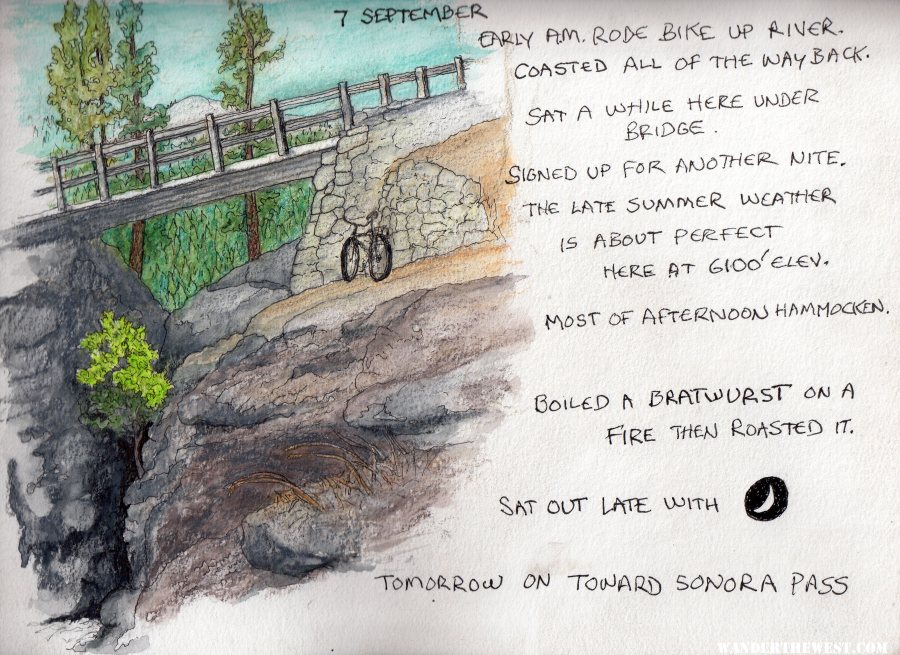 7 SEPTEMBER
EARLY A.M. RODE BIKE UP RIVER.
COASTED ALL OF THE WAY BACK.
SAT A WHILE HERE UNDER
BRIDGE.
SIGNED UP FOR ANOTHER NITE.
THE LATE SUMMER WEATHER
IS ABOUT PERFECT
HERE AT 6100' ELEV.
MOST OF AFTERNOON HAMMOCKEN.
BOILED A BRATWURST ON A
FIRE THEN ROASTED IT.
SAT OUT LATE WITH
TOMORROW ON TOWARD SONORA PASS
WANDERTHEWEST.COM